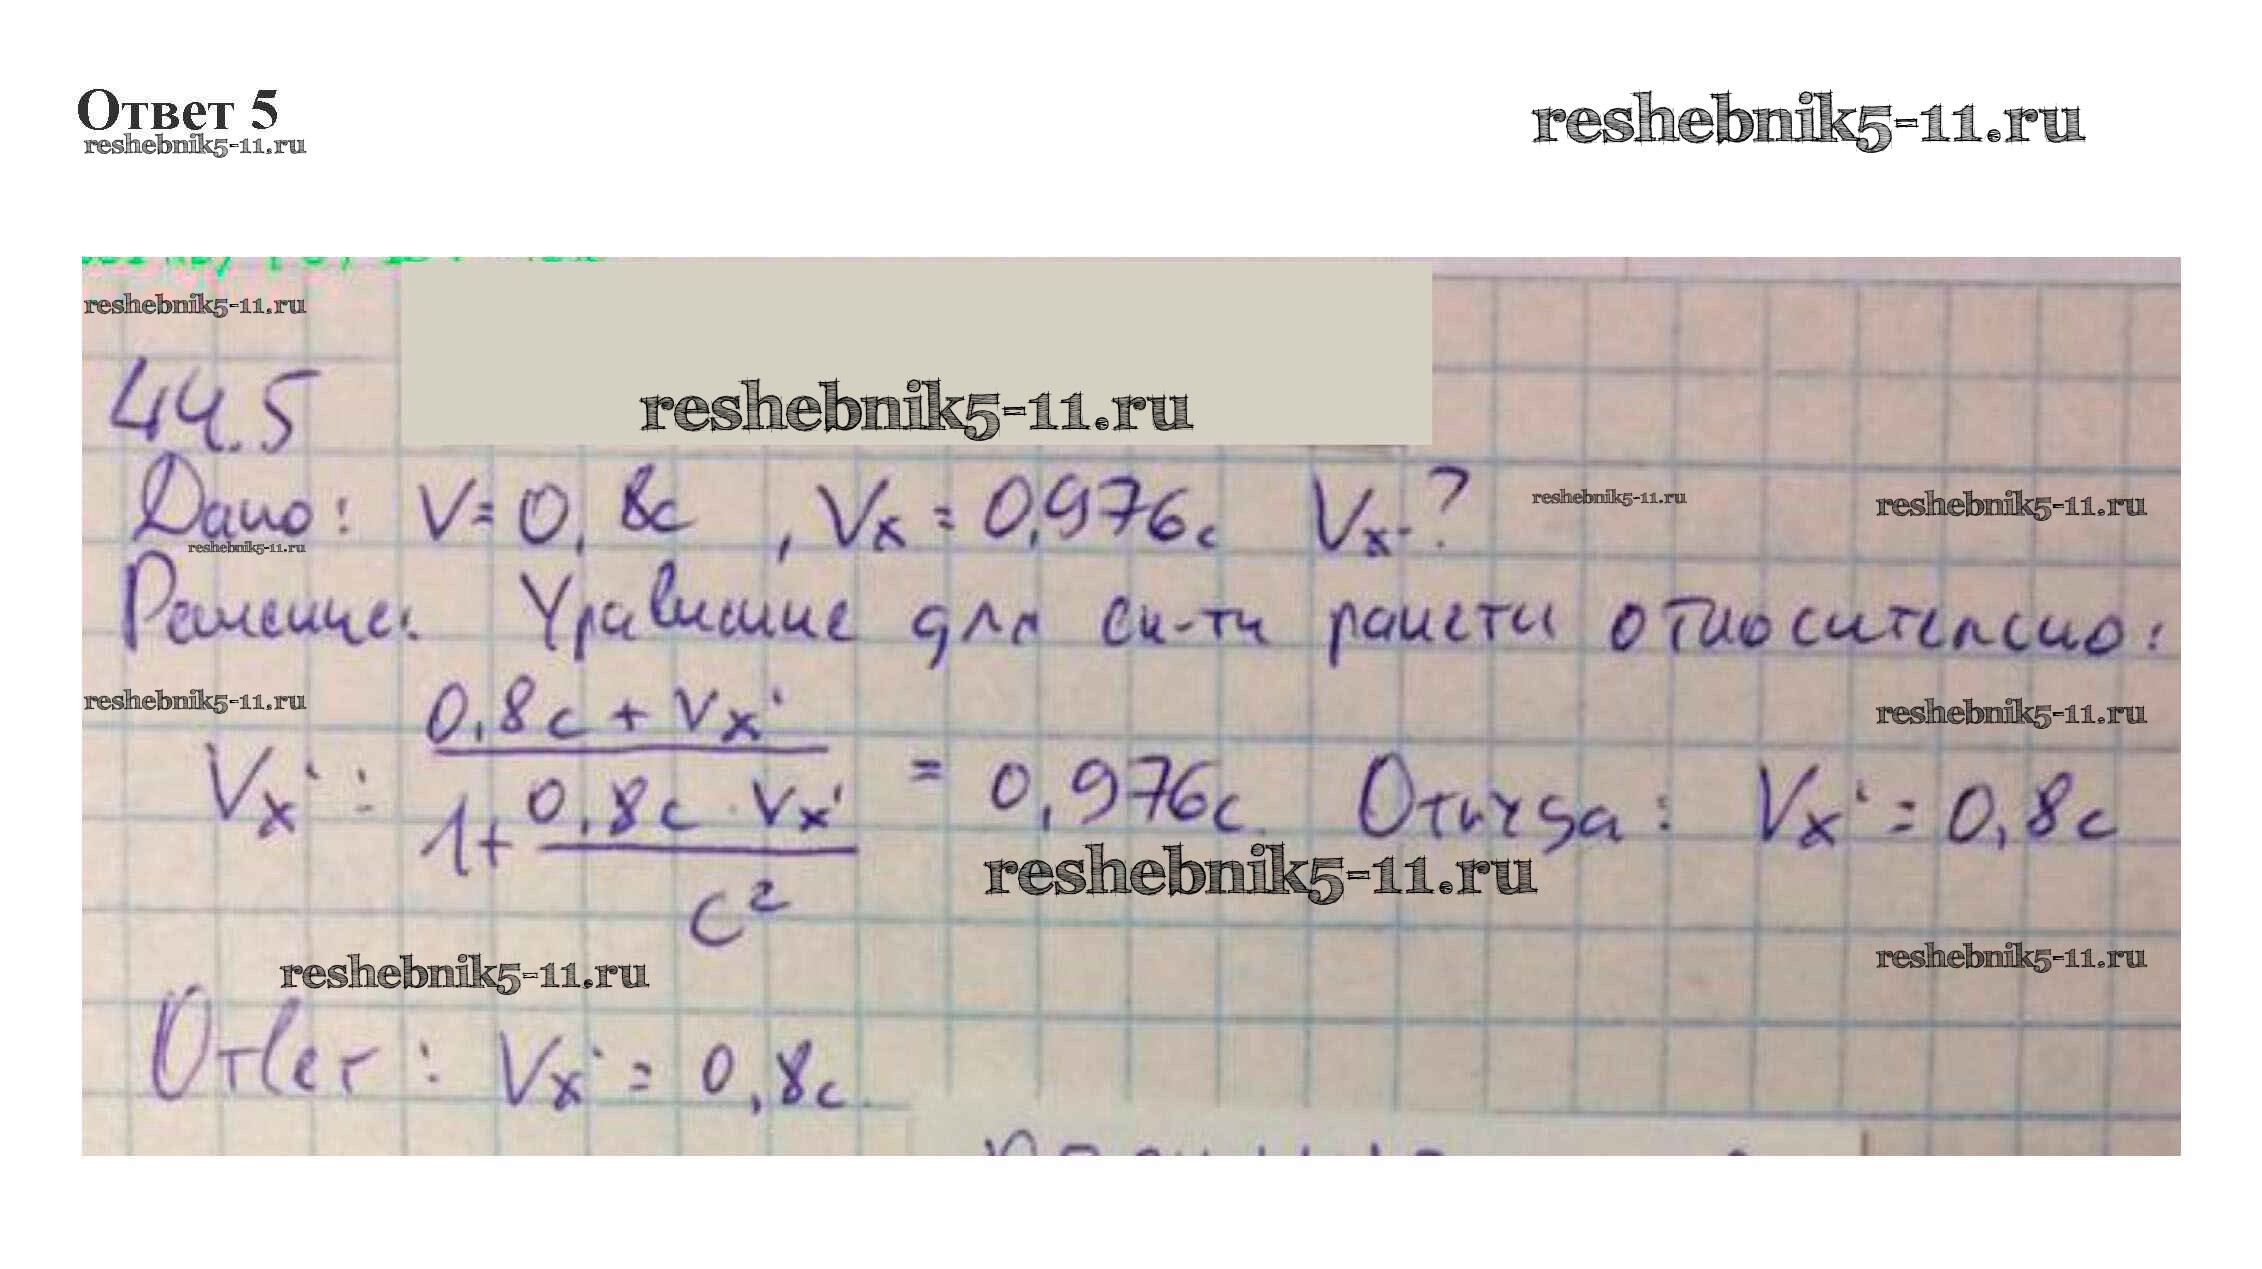 Ответ 5
reshebnik5-11.ru
reshebnik5-11.ru
reshebnik5-11.ru
reshebnik5-11.ru
44.5
Дано: V = 0,8c , Vx = 0,976c Vx' - ?
reshebnik5-11.ru
reshebnik5-11.ru
reshebnik5-11.ru
Решение: Уравнение для ск-ти ракеты относительно:
reshebnik5-11.ru
reshebnik5-11.ru
0,8c + Vx'
Vx' = = 0,976c. Откуда: Vx' = 0,8c
1 + 0,8c · Vx'
c²
reshebnik5-11.ru
reshebnik5-11.ru
reshebnik5-11.ru
Ответ: Vx' = 0,8c.